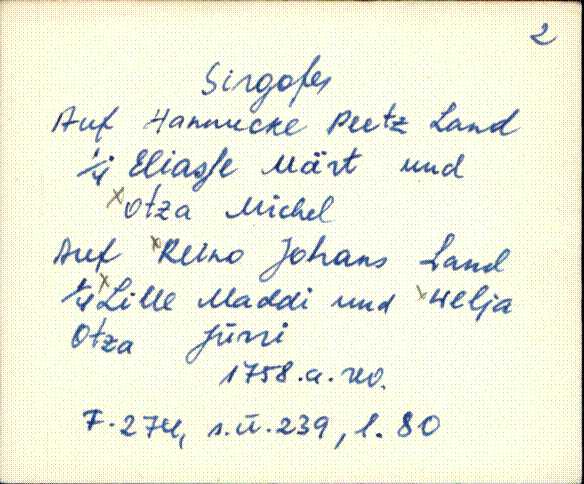 2
Sirgofer
Auf Hannucke Peetz Land
1/4 Eliasse Märt und
x Otza Michel
Auf x Reino Johans Land
1/4 x Lille Maddi und x Welja
Otza Jürri
1758.a. rev.
F. 274, s.ü. 239, l. 80